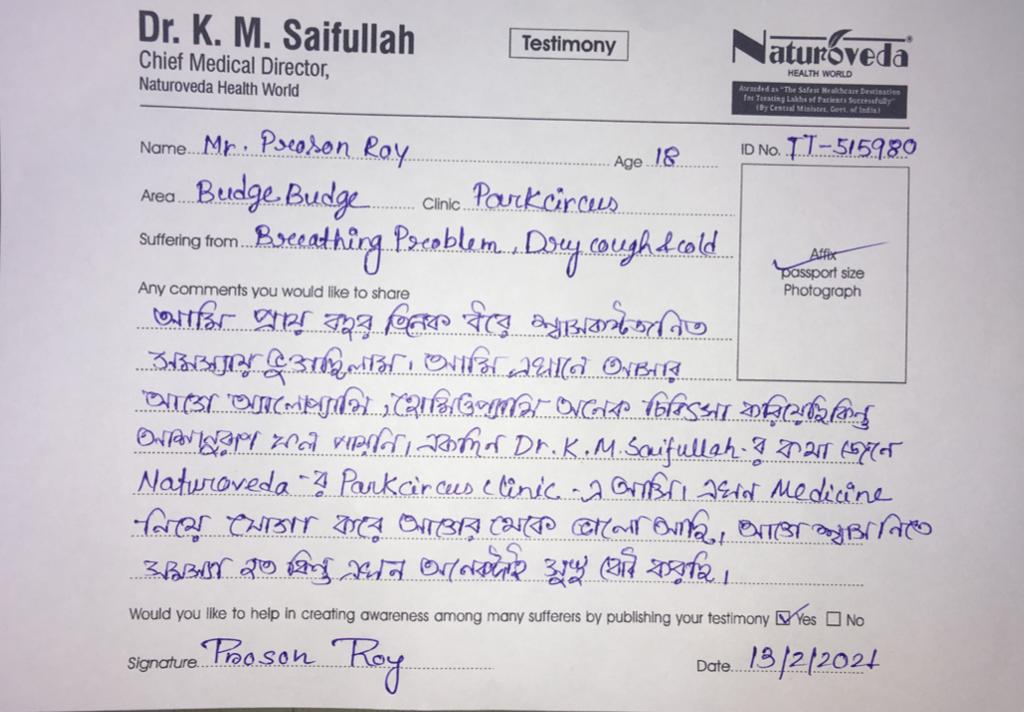 Dr. K. M. Saifullah
Chief Medical Director,
Naturoveda Health World
Testimony
Naturoveda®
HEALTH WORLD
Awarded as "The Safest Healthcare Destination
for Treating Lakhs of Patients Successfully"
(By Central Minister, Govt. of India)
Name Mr. Proson Roy Age 18 ID No. TT-515980
Area Budge Budge Clinic Parkcircus
Suffering from Breathing Problem, Dry cough & cold
Affix
passport size
Photograph
Any comments you would like to share
আমি প্রায় বছর তিনেক ধরে শ্বাসকষ্টজনিত
সমস্যায় ভুগছিলাম। আমি এখানে আসার
আগে অ্যালোপ্যাথি, হোমিওপ্যাথি অনেক চিকিৎসা করিয়েছি কিন্তু
আশানুরূপ ফল পায়নি। একদিন Dr. K. M. Saifullah-র কথা জেনে
Naturoveda-র Parkcircus clinic-এ আসি। এখন Medicine
নিয়ে করে আগের থেকে ভালো আছি, আগে শ্বাস নিতে
সমস্যা হত কিন্তু এখন অনেকটাই সুস্থ বোধ করছি।
Would you like to help in creating awareness among many sufferers by publishing your testimony Yes No
Signature Proson Roy Date 13/2/2021